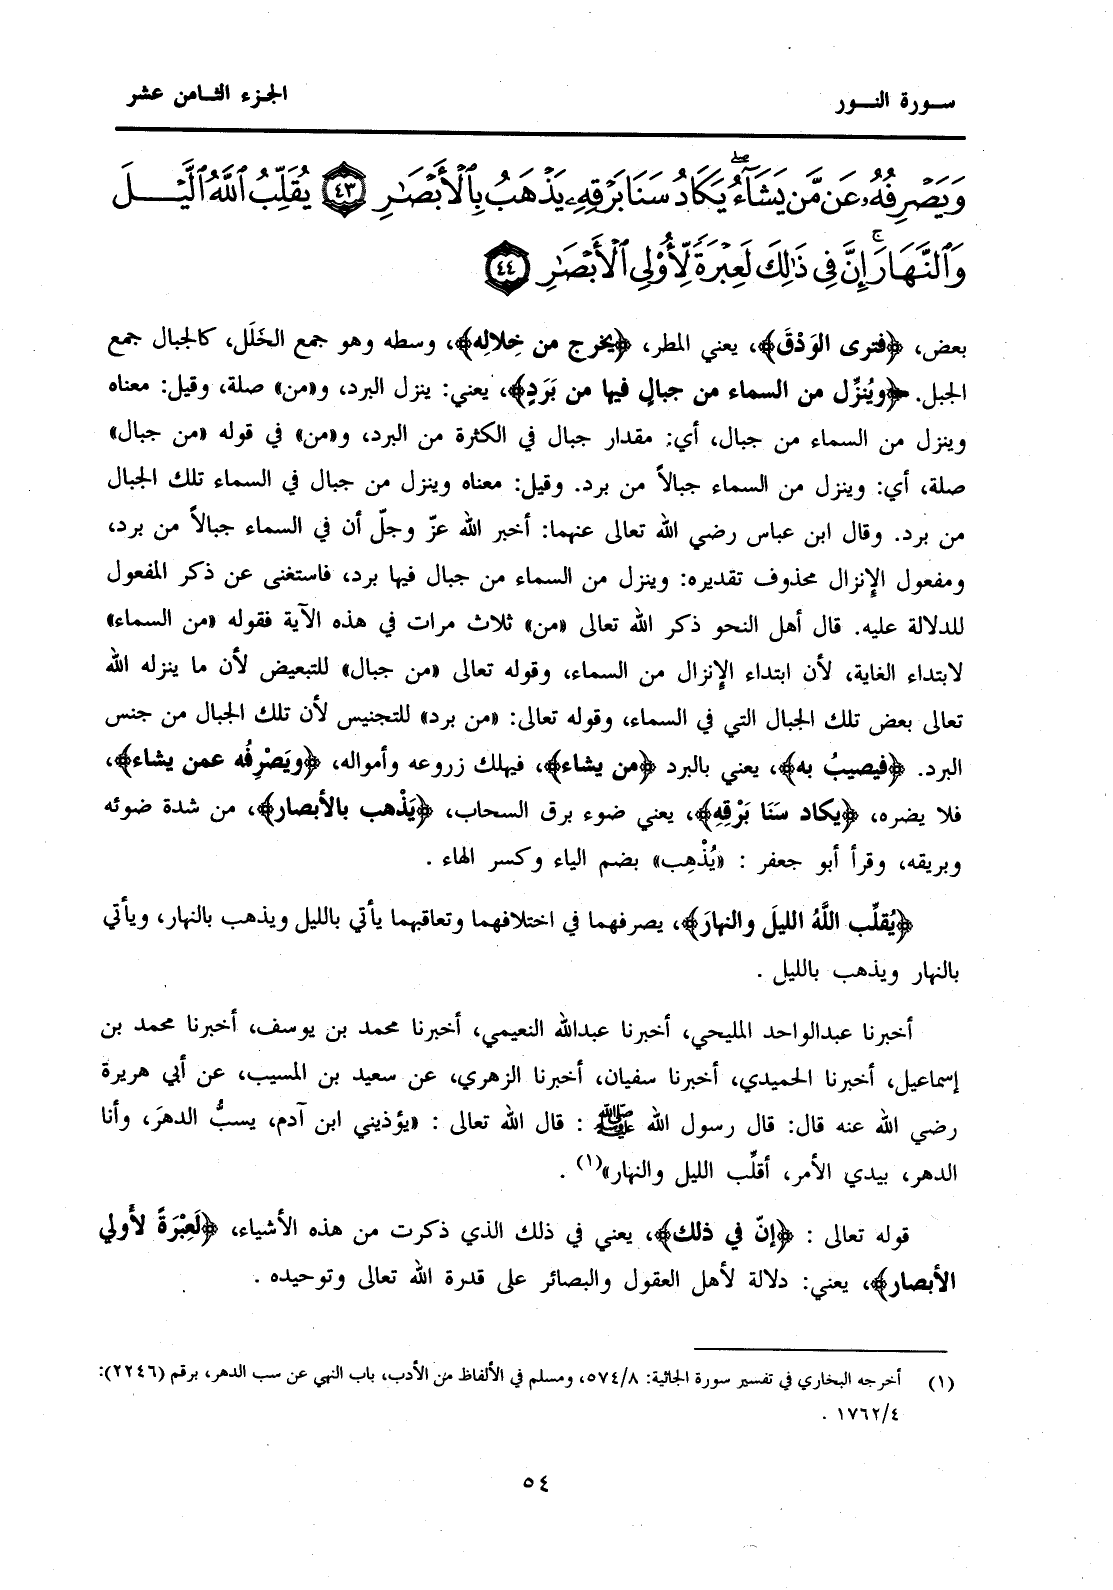 سورة النور
الجزء الثامن عشر
وَيَصْرِفُهُۥ عَن مَّن يَشَآءُ ۖ يَكَادُ سَنَا بَرْقِهِۦ يَذْهَبُ بِٱلْأَبْصَٰرِ ﴿٤٣﴾ يُقَلِّبُ ٱللَّهُ ٱلَّيْلَ
وَٱلنَّهَارَ ۚ إِنَّ فِى ذَٰلِكَ لَعِبْرَةً لِّأُو۟لِى ٱلْأَبْصَٰرِ ﴿٤٤﴾
بعض، ﴿فترى الوَدْقَ﴾، يعني المطر، ﴿يخرج من خِلالِه﴾، وسطه وهو جمع الخَلَل، كالجبال جمع
الجبل. ﴿ويُنزِّل من السماء من جبالٍ فيها من بَرَدٍ﴾، يعني: ينزل البرد، و«من» صلة، وقيل: معناه
وينزل من السماء من جبال، أي: مقدار جبال في الكثرة من البرد، و«من» في قوله «من جبال»
صلة، أي: وينزل من السماء جبالاً من برد. وقيل: معناه وينزل من جبال في السماء تلك الجبال
من برد. وقال ابن عباس رضي الله تعالى عنهما: أخبر الله عزّ وجلّ أن في السماء جبالاً من برد،
ومفعول الإنزال محذوف تقديره: وينزل من السماء من جبال فيها برد، فاستغنى عن ذكر المفعول
للدلالة عليه. قال أهل النحو ذكر الله تعالى «من» ثلاث مرات في هذه الآية فقوله «من السماء»
لابتداء الغاية، لأن ابتداء الإنزال من السماء، وقوله تعالى «من جبال» للتبعيض لأن ما ينزله الله
تعالى بعض تلك الجبال التي في السماء، وقوله تعالى: «من برد» للتجنيس لأن تلك الجبال من جنس
البرد. ﴿فيصيبُ به﴾، يعني بالبرد ﴿من يشاء﴾، فيهلك زروعه وأمواله، ﴿ويَصْرِفُه عمن يشاء﴾،
فلا يضره، ﴿يكاد سَنَا بَرْقِهِ﴾، يعني ضوء برق السحاب، ﴿يَذْهب بالأبصار﴾، من شدة ضوئه
وبريقه، وقرأ أبو جعفر : «يُذْهِب» بضم الياء وكسر الهاء .
﴿يُقلِّب اللَّهُ الليلَ والنهارَ﴾، يصرفهما في اختلافهما وتعاقبهما يأتي بالليل ويذهب بالنهار، ويأتي
بالنهار ويذهب بالليل .
أخبرنا عبدالواحد المليحي، أخبرنا عبدالله النعيمي، أخبرنا محمد بن يوسف، أخبرنا محمد بن
إسماعيل، أخبرنا الحميدي، أخبرنا سفيان، أخبرنا الزهري، عن سعيد بن المسيب، عن أبي هريرة
رضي الله عنه قال: قال رسول الله ﷺ : قال الله تعالى : «يؤذيني ابن آدم، يسبُّ الدهرَ، وأنا
الدهر، بيدي الأمر، أقلِّب الليل والنهار»(١) .
قوله تعالى : ﴿إنّ في ذلك﴾، يعني في ذلك الذي ذكرت من هذه الأشياء، ﴿لَعِبْرَةً لأولي
الأبصار﴾، يعني: دلالة لأهل العقول والبصائر على قدرة الله تعالى وتوحيده .
(١) أخرجه البخاري في تفسير سورة الجاثية: ٥٧٤/٨، ومسلم في الألفاظ من الأدب، باب النهي عن سب الدهر، برقم (٢٢٤٦):
١٧٦٢/٤ .
٥٤